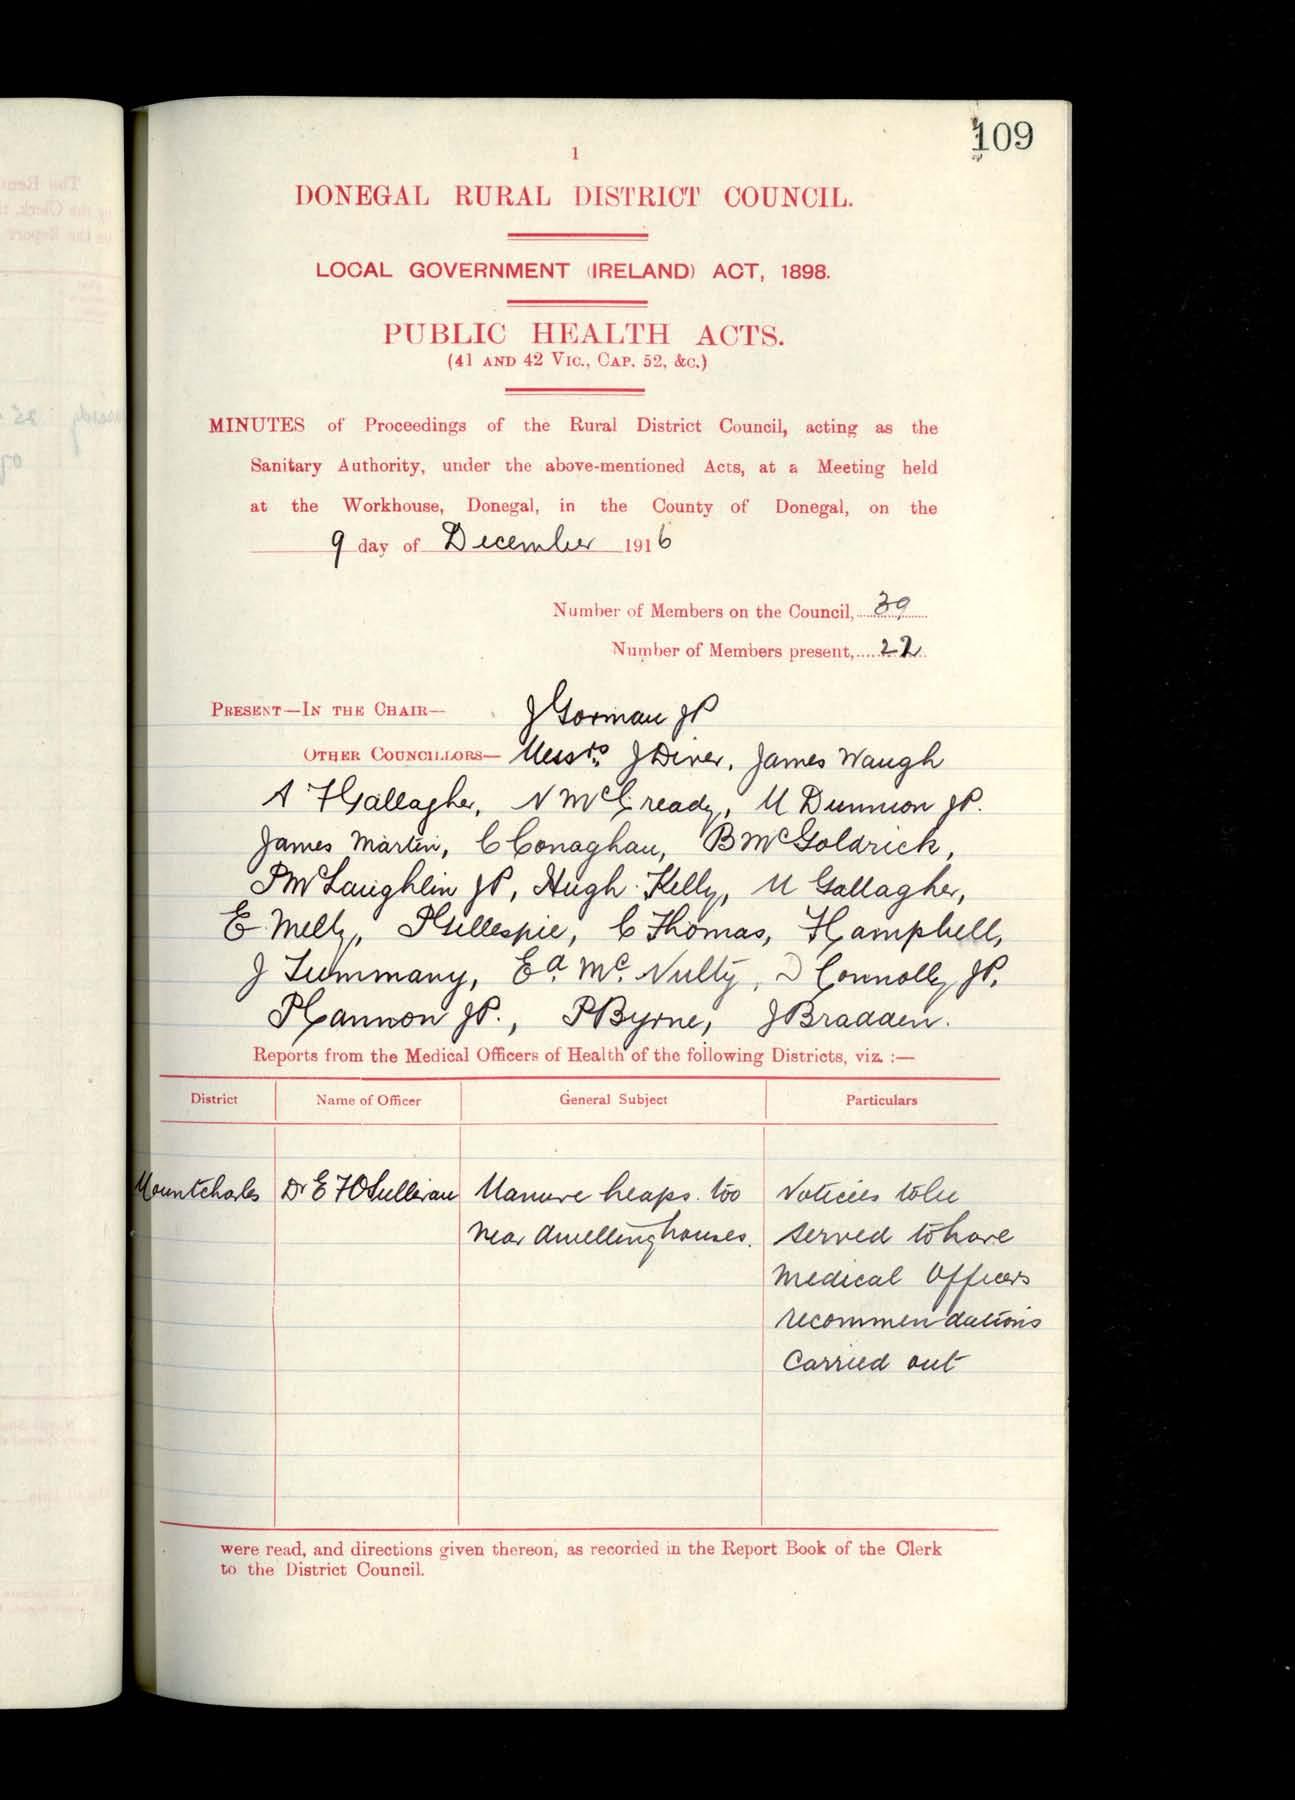 109
1
DONEGAL RURAL DISTRICT COUNCIL.
LOCAL GOVERNMENT (IRELAND) ACT, 1898.
PUBLIC HEALTH ACTS.
(41 AND 42 VIC., CAP. 52, &C.)
MINUTES of Proceedings of the Rural District Council, acting as the
Sanitary Authority, under the above-mentioned Acts, at a Meeting held
at the Workhouse, Donegal, in the County of Donegal, on the
9 day of December 1916
Number of Members on the Council, 39
Number of Members present, 22
PRESENT—IN THE CHAIR— J Gorman JP
OTHER COUNCILLORS— Messrs J Diver, James Waugh
A F Gallagher, N McCready, M Dunnion JP.
James Martin, C Conaghan, B McGoldrick,
P McLaughlin JP, Hugh Kelly, M Gallagher,
E Melly, P Gillespie, C Thomas, F Campbell,
J Timmany, Ed. Mc. Nulty, D Connolly JP,
P Cannon JP., P Byrne, J Bradden.
Reports from the Medical Officers of Health of the following Districts, viz. :—
District Name of Officer General Subject Particulars
Mountcharles Dr E F O'Sullivan Manure heaps too Notices to be
near dwellinghouses. served to have
medical Officers
recommendations
carried out
were read, and directions given thereon, as recorded in the Report Book of the Clerk
to the District Council.